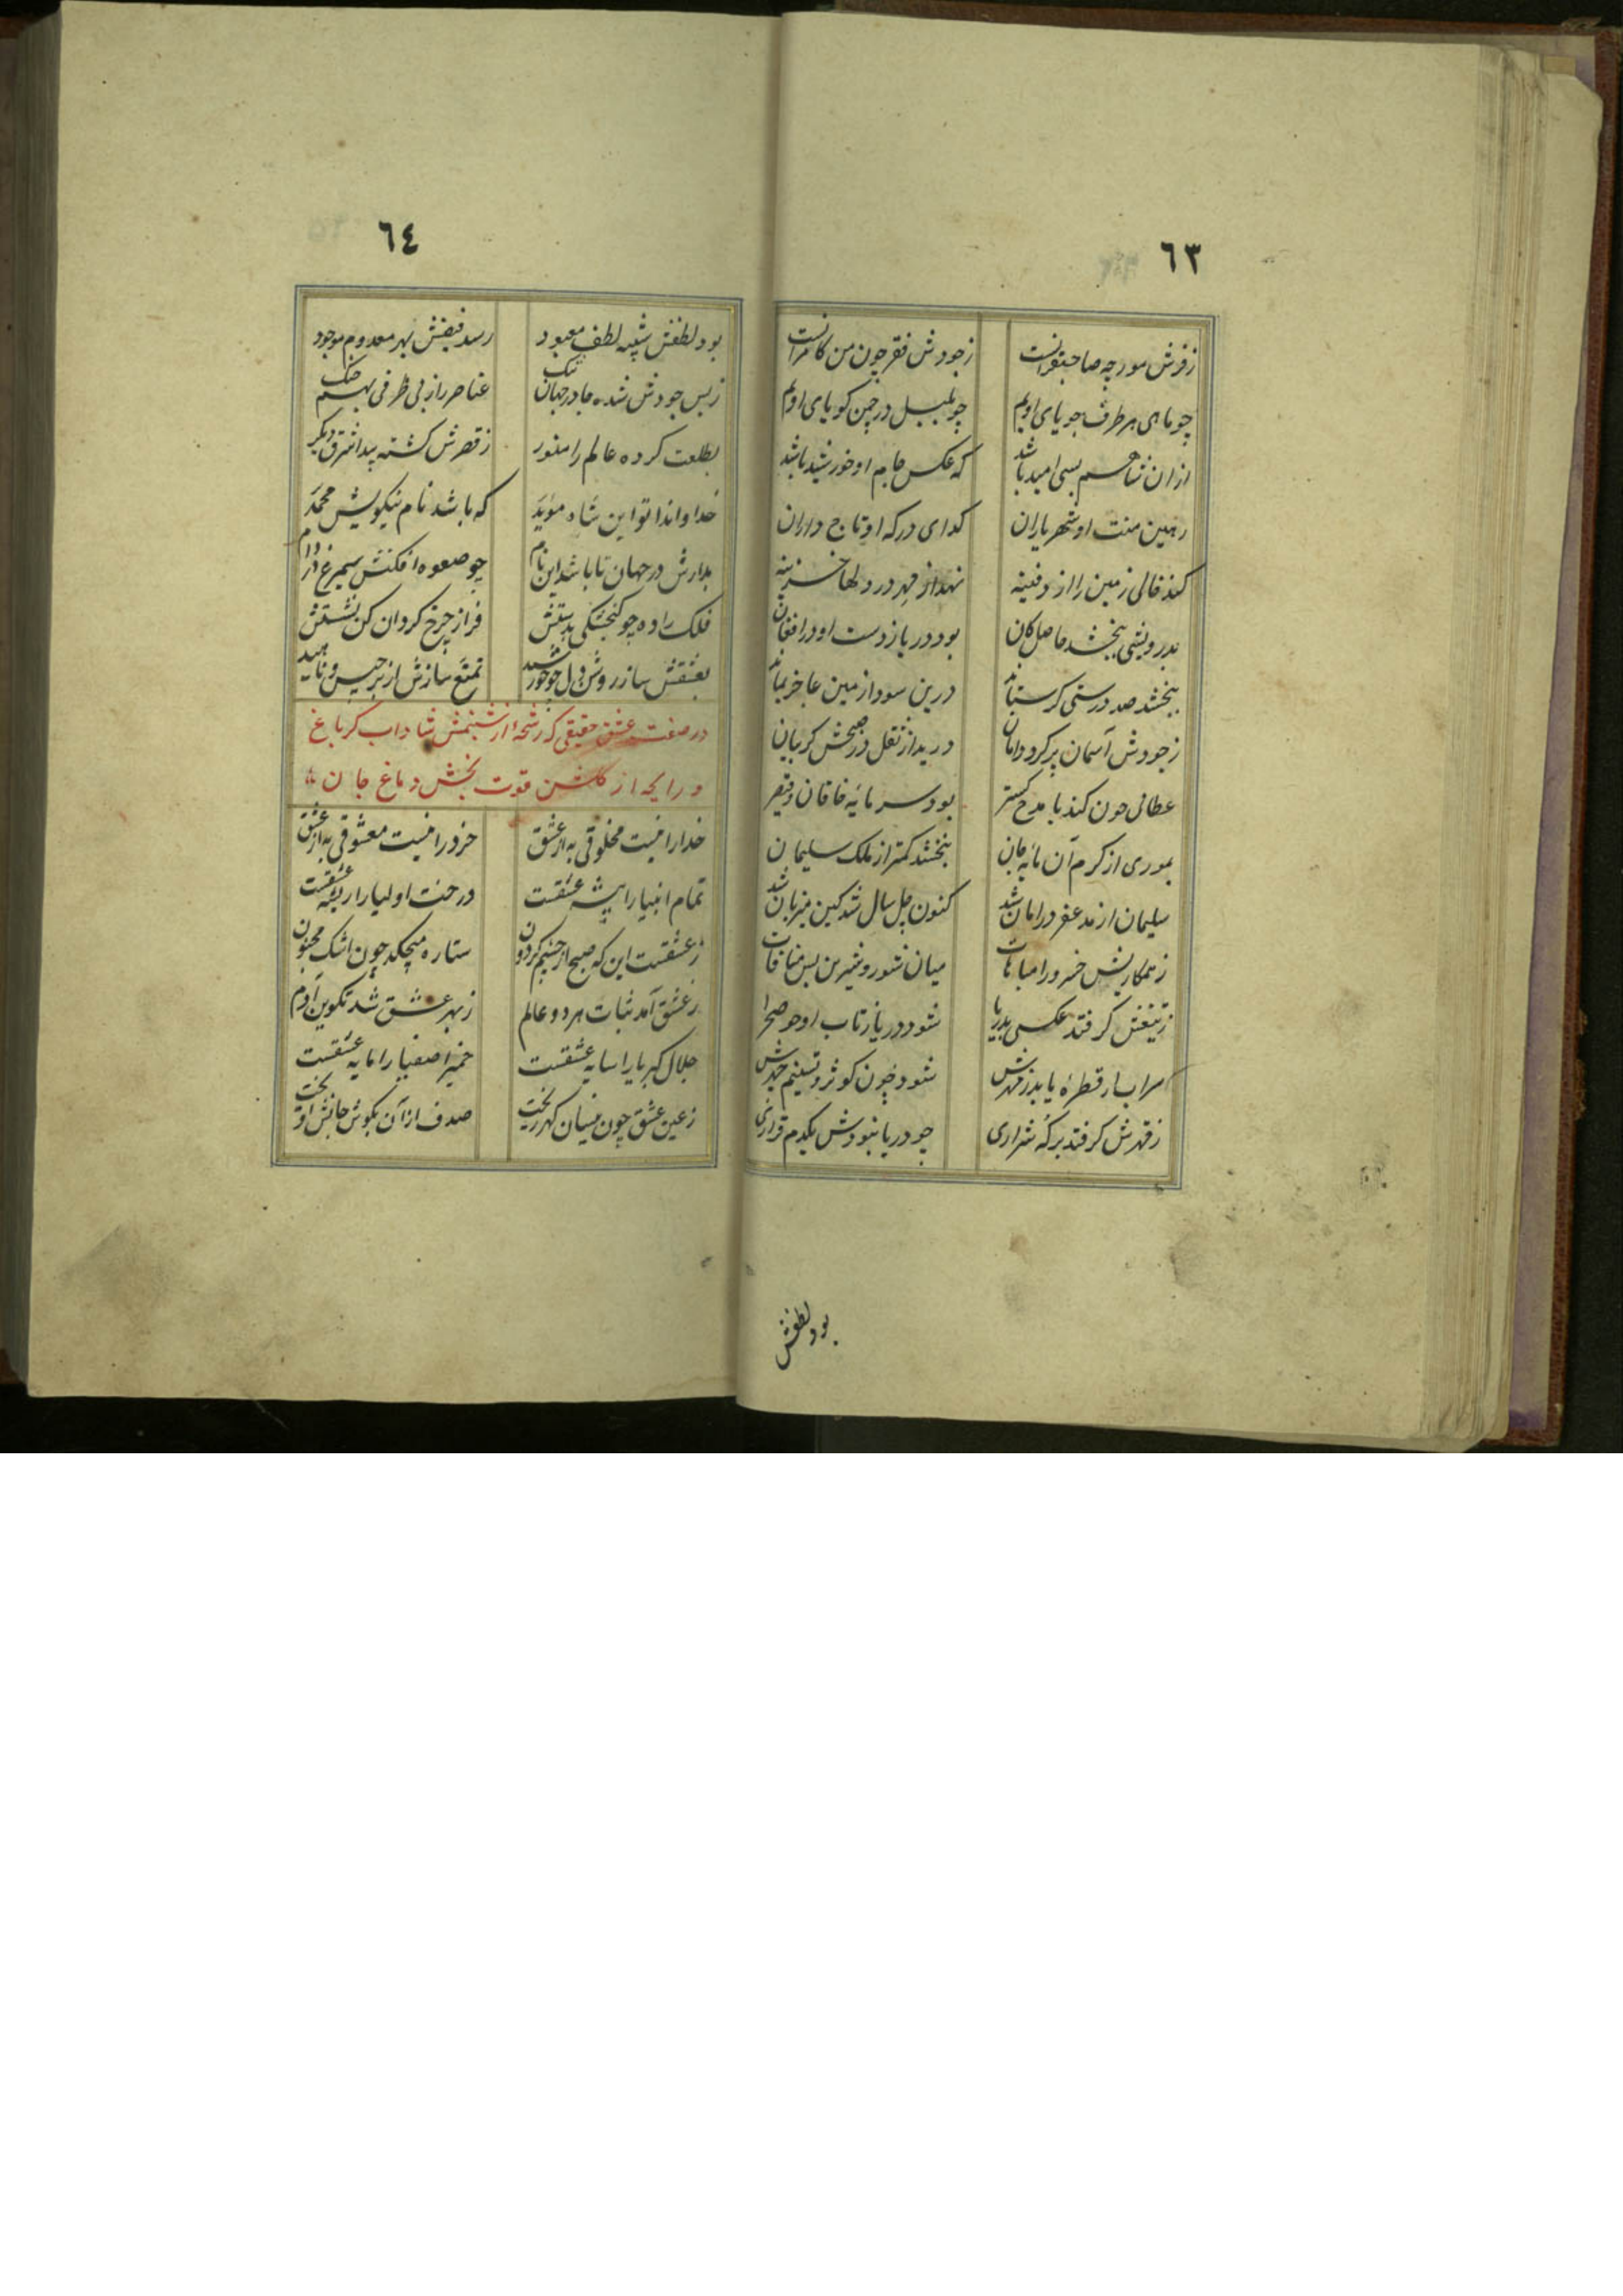 ٦٣
زفرش مورچه صاحبقرانست زجودش فقر چون من کامرانست
چو ماهی هر طرف جویای اویم چو بلبل در چمن کویای اویم
ازان شاهم بسی امید باشد که عکس جام او خورشید باشد
رهین منت او شهریاران کدای درکه او تاج داران
کند خالی زمین را از دفینه نهد از مهر در دلها خزینه
بدرویشی ببخشد حاصل کان بود دریا زدست او در افغان
ببخشد صد درستی کر ستاند درین سودا زمین عاجز بماند
زجودش آسمان پر کرد دامان درید از نقل در صبحش کریبان
عطائی چون کند با مدح کستر بود سرمایه خاقان و قیصر
بموری از کرم آن مایه جان ببخشد کمتر از ملک سلیمان
سلیمان از مدعفر در امان شد کنون چل سال شد کین میزبان شد
زهمکاریش خسرو را مباهات میان شور و شیرین بس منافات
زتیغش کر فتد عکسی بدریا شود دریا زتاب او چو صحرا
سراب ار قطرهٔ یابد زمهرش شود چون کوثر و تسنیم
زقهرش کر فتد بر که شراری چو دریا نبودش یکدم قراری
بود لطفش
٦٤
بود لطفش شبیه لطف معبود رسد فیضش بهر معدوم موجود
زبس جودش شده جا در جهان تنک عناصر را زبی ظرفی بهم جنک
بطلعت کرده عالم را منور زقصرش کشته پیدا شرق دیکر
خداوندا تو این شاه موید که باشد نام نیکویش محمد
بدارش در جهان تا باشد این نام چو صعوه افکنش سیمرغ در دام
فلک را ده چو کنجشکی بدستش فراز چرخ کردان کن نشستش
بعشقش ساز روشن دل چو خورشید تمتع سازش از برجیس و ناهید
در صفت عشق حقیقی که رشحهٔ از شبنمش شاداب کر باغ
و رایحه از کلشن قوت بخش دماغ جان
خدا را نیست مخلوقی به از عشق خرد را نیست معشوقی به از عشق
تمام انبیا را پیشه عشقست درخت اولیا را ریشه عشقست
زعشقست این که صبح از چشم کردون ستاره میچکد چون اشک مجنون
زعشق آمد ثبات هر دو عالم زبهر عشق شد تکوین آدم
جلال کبریا را سایه عشقست خمیر اصفیا را مایه عشقست
زعین عشق چون نیسان کهر ریخت صدف از آن بکوش جانش آویخت